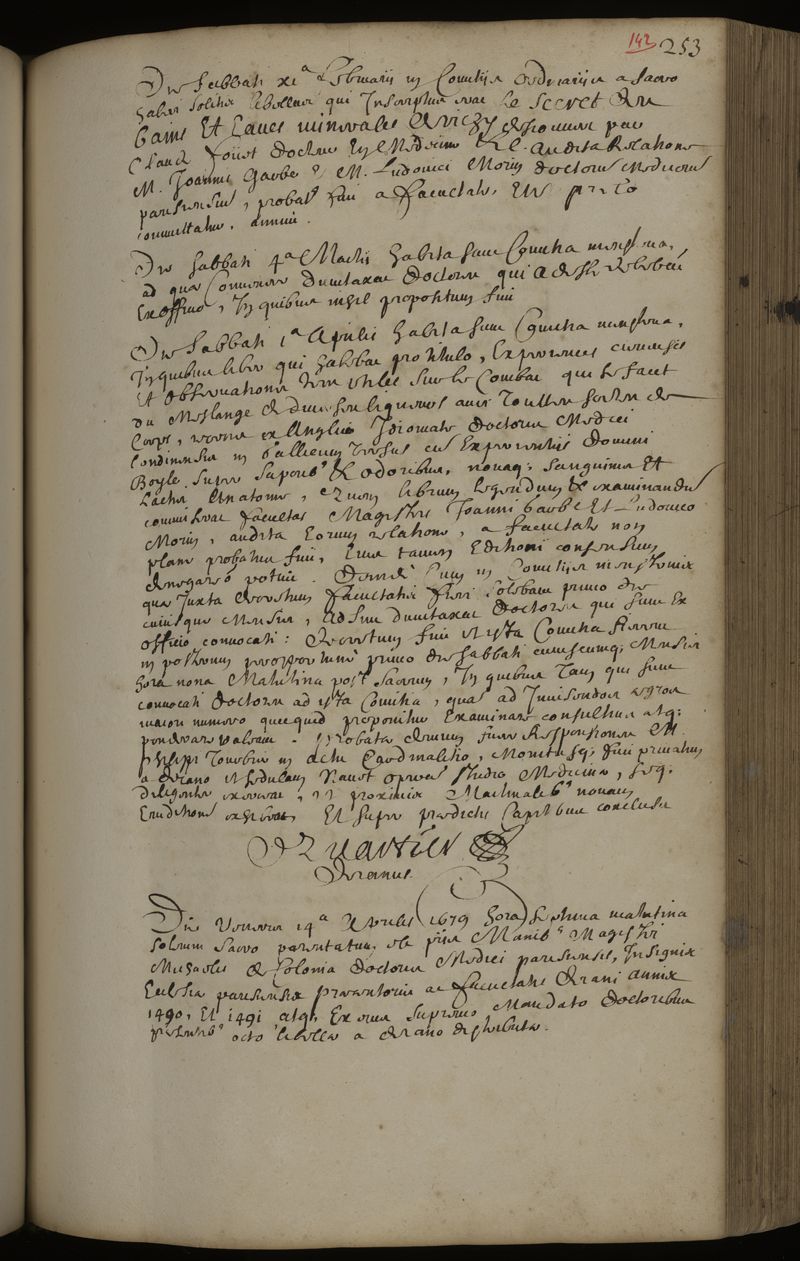 142 253
Die Sabbati xi.a Februarii in Comitiis Ordinariis a sacro
haberi solitis libellus qui Inscriptus erat le Secret des
Bains Et Eaues minerales de vichy par
Claude foüet docteur En Medecine &c. audita Relatione
M. Joannis Garbe & M. Ludovici Morin doctorum Medicorum
parisiensium, probatus fuit a facultate,
die Sabbati 4.a Martii habita sunt Comitia menstrua,
ad quae Convenere dumtaxat doctores qui adesse debebant
Ex officio, In quibus nihil propositum fuit
Die Sabbati 1.a Aprilis habita sunt Comitia menstrua,
In quibus liber qui habebat pro titulo, Experiences curieuses
Et observations tres utiles sur le Combat qui se fait
du Meslange de liqueurs avec Toutte sorte de
Corps, ex Anglico Idiomate doctoris Medici
Londinensis in Gallicum versus cum Experimentis domini
Boyle supra saporibus & odoribus, novaque sanguinis Et
Lactis Anatome, quem librum legendum & examinandum
commiserat facultas Magistris Joanni Garbe Et Ludovico
Morin, audita Eorum relatione, a facultate non
plane probatus fuit, Eius tamen Editioni consensum
denegare potuit. Deinde Cum in Comitiis menstruis
quae Juxta decretum facultatis fieri solebant primo die
cuiusque Mensis, adsint dumtaxat doctores qui sunt Ex
officio convocati: decretum fuit ut ista Comitia fierent
in posterum primo die sabbati cuiuscumque Mensis
hora nona Matutina post sacrum, In quibus Tam qui sunt
convocati doctores ad ista Comitia, quam ad
maiori numero quicquid proponitur Examinare consultius atque
ponderare valeant. probata demum fuere Responsiones M.
philippi in actu Cardinalitio, Monitusque fuit privatim
a decano ut sedulam Navet operam studio Medicinae,
diligenter, ut proximis Martinalibus novam
Eruditionem, Et supra praedictis Capitibus conclusit
Quartier
Decanus
Die Veneris 14.a Aprilis 1679 hora septima matutina
solemni sacro parentatum est piis Manibus Magistri
Michaelis de Colonia doctoris Medici parisiensis, Insignis
Ecclesiae parisiensis praecentoris ac facultatis decani annis
1490, Et 1491 atque Ex eius supremo Mandato doctoribus
praesentibus octo libella a decano distributa.